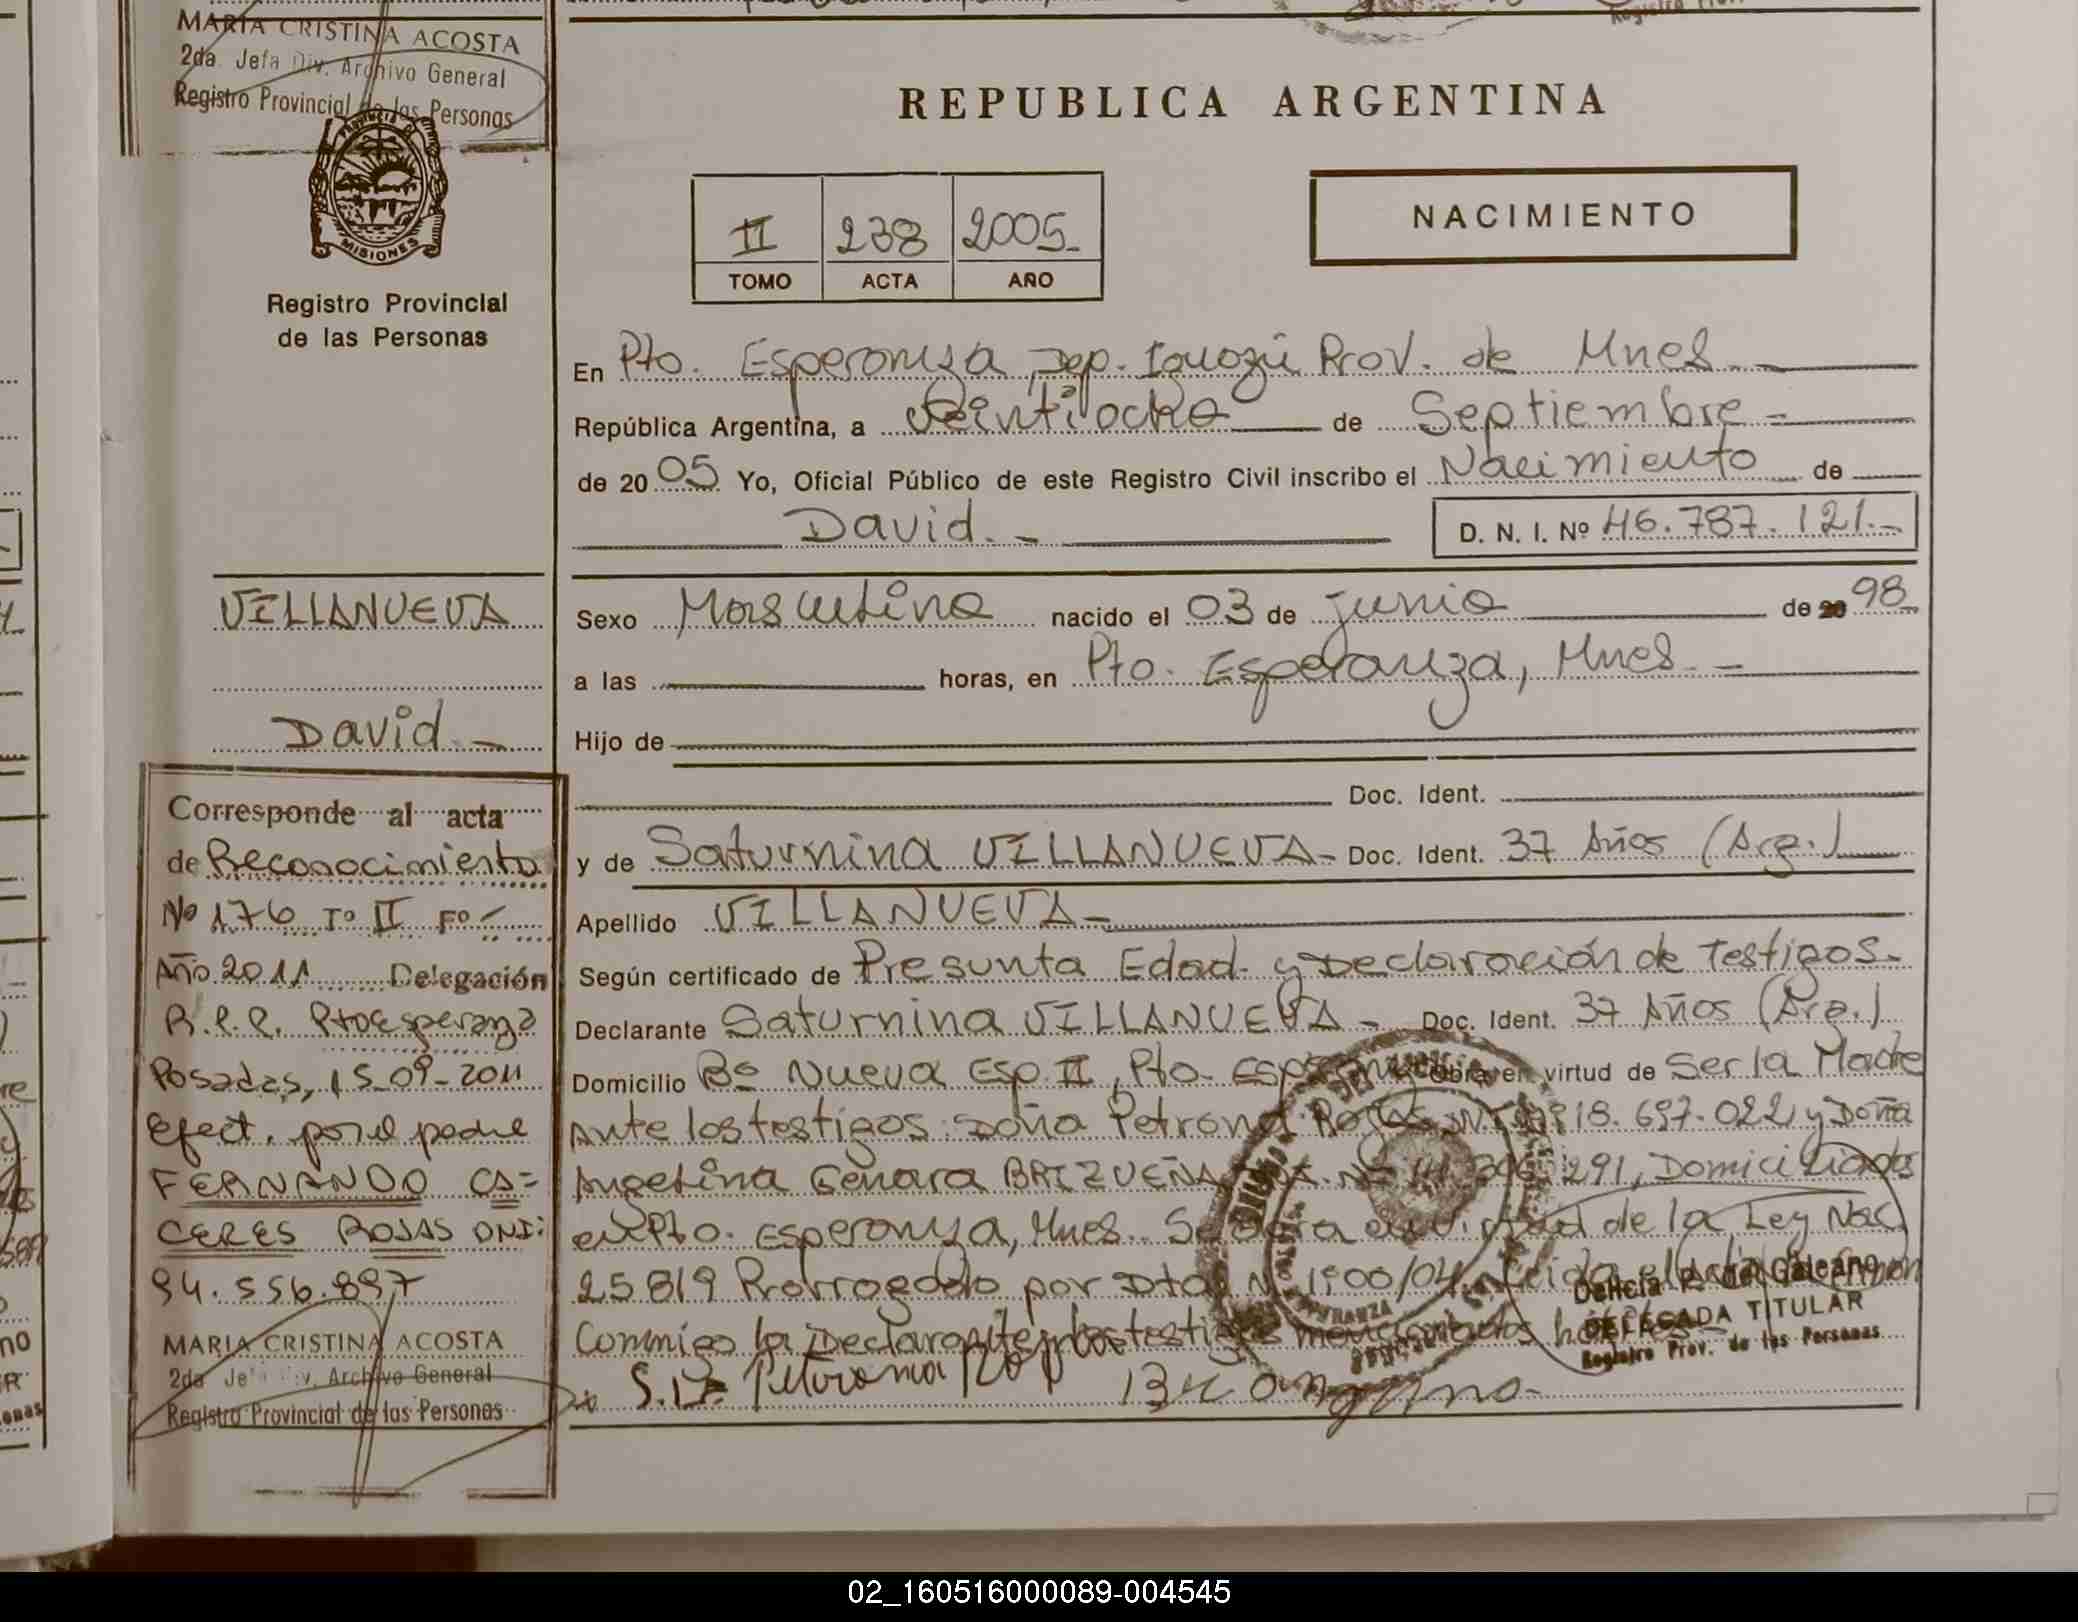 MARIA CRISTINA ACOSTA
2da. Jefa Div. Archivo General
Registro Provincial de las Personas
PROVINCIA DE
MISIONES
Registro Provincial
de las Personas
VILLANUEVA
David.-
Corresponde al acta
de Reconocimiento
Nº 176 Tº II Fº -
Año 2011 Delegación
R.P.P. Pto Esperanza
Posadas, 15-09-2011
Efect. por el padre
FERNANDO CA=
CERES ROJAS DNI:
94.556.897
MARIA CRISTINA ACOSTA
2da Jefa Div. Archivo General
Registro Provincial de las Personas
REPUBLICA ARGENTINA
II 238 2005-
TOMO ACTA AÑO
NACIMIENTO
En Pto. Esperanza, Dep. Iguazú Prov. de Mnes.-
República Argentina, a veintiocho de Septiembre-
de 2005 Yo, Oficial Público de este Registro Civil inscribo el Nacimiento de
David.- D. N. I. Nº 46.787.121.-
Sexo Masculino nacido el 03 de junio de 20 98
a las horas, en Pto. Esperanza, Mnes.-
Hijo de
Doc. Ident.
y de Saturnina VILLANUEVA- Doc. Ident. 37 Años (Arg.)
Apellido VILLANUEVA-
Según certificado de Presunta Edad y Declaración de Testigos.-
Declarante Saturnina VILLANUEVA- Doc. Ident. 37 Años (Arg.)
Domicilio Bº Nueva Esp. II, Pto. Esperanza Obra en virtud de Ser la Madre
Ante los testigos: Doña Petrona Rojas 18.697.022 y Doña
Angelina Genara BRIZUEÑA 291, Domiciliados
en Pto. Esperanza, Mnes. Se obra en virtud de la Ley Nac.
25819 Prorrogado por Dto. Nº 1.100/04. Leida el Acta
Conmigo la Declarante y los testigos mencionados
Petrona Roj
Delicia R. de Galeano
DELEGADA TITULAR
Registro Prov. de las Personas
02_160516000089-004545